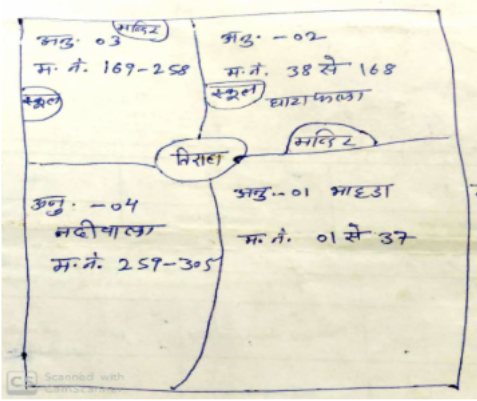 मन्दिर
अनु. 03
म. नं. 169-258
स्कूल
अनु. -02
म. नं. 38 से 168
स्कूल
घाटा फला
तिराहा
मन्दिर
अनु. -04
नदीवाला
म. नं. 259-305
अनु.-01 भाहडा
म. नं. 01 से 37
CS Scanned with
CamScanner